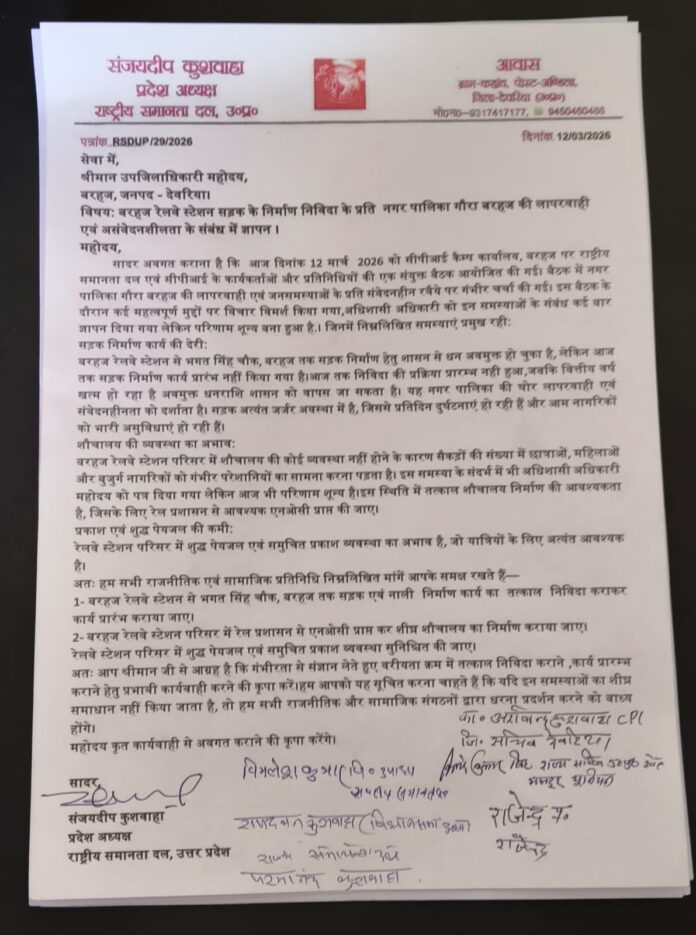 संजयदीप कुशवाहा
प्रदेश अध्यक्ष
राष्ट्रीय समानता दल, उ०प्र०
आवास
ग्राम-कहांव, पोस्ट-
जिला-देवरिया (उ०प्र०)
मो०न०-9317417177, 9450460466
पत्रांक..RSDUP/29/2026
दिनांक 12/03/2026
सेवा में,
श्रीमान उपजिलाधिकारी महोदय,
बरहज, जनपद - देवरिया।
विषय: बरहज रेलवे स्टेशन सड़क के निर्माण निविदा के प्रति नगर पालिका गौरा बरहज की लापरवाही
एवं असंवेदनशीलता के संबंध में ज्ञापन ।
महोदय,
सादर अवगत कराना है कि आज दिनांक 12 मार्च 2026 को सीपीआई कैम्प कार्यालय, बरहज पर राष्ट्रीय
समानता दल एवं सीपीआई के कार्यकर्ताओं और प्रतिनिधियों की एक संयुक्त बैठक आयोजित की गई। बैठक में नगर
पालिका गौरा बरहज की लापरवाही एवं जनसमस्याओं के प्रति संवेदनहीन रवैये पर गंभीर चर्चा की गई। इस बैठक के
दौरान कई महत्वपूर्ण मुद्दों पर विचार विमर्श किया गया,अधिशासी अधिकारी को इन समस्याओं के संबंध कई बार
ज्ञापन दिया गया लेकिन परिणाम शून्य बना हुआ है.। जिनमें निम्नलिखित समस्याएं प्रमुख रही:
सड़क निर्माण कार्य की देरी:
बरहज रेलवे स्टेशन से भगत सिंह चौक, बरहज तक सड़क निर्माण हेतु शासन से धन अवमुक्त हो चुका है, लेकिन आज
तक सड़क निर्माण कार्य प्रारंभ नहीं किया गया है।आज तक निविदा की प्रक्रिया प्रारम्भ नही हुआ,जबकि वित्तीय वर्ष
खत्म हो रहा है अवमुक्त धनराशि शासन को वापस जा सकता है। यह नगर पालिका की घोर लापरवाही एवं
संवेदनहीनता को दर्शाता है। सड़क अत्यंत जर्जर अवस्था में है, जिससे प्रतिदिन दुर्घटनाएं हो रही हैं और आम नागरिकों
को भारी असुविधाएं हो रही हैं।
शौचालय की व्यवस्था का अभाव:
बरहज रेलवे स्टेशन परिसर में शौचालय की कोई व्यवस्था नहीं होने के कारण सैकड़ों की संख्या में छात्राओं, महिलाओं
और बुजुर्ग नागरिकों को गंभीर परेशानियों का सामना करना पड़ता है। इस समस्या के संदर्भ में भी अधिशासी अधिकारी
महोदय को पत्र दिया गया लेकिन आज भी परिणाम शून्य है।इस स्थिति में तत्काल शौचालय निर्माण की आवश्यकता
है, जिसके लिए रेल प्रशासन से आवश्यक एनओसी प्राप्त की जाए।
प्रकाश एवं शुद्ध पेयजल की कमी:
रेलवे स्टेशन परिसर में शुद्ध पेयजल एवं समुचित प्रकाश व्यवस्था का अभाव है, जो यात्रियों के लिए अत्यंत आवश्यक
है।
अतः हम सभी राजनीतिक एवं सामाजिक प्रतिनिधि निम्नलिखित मांगें आपके समक्ष रखते हैं—
1- बरहज रेलवे स्टेशन से भगत सिंह चौक, बरहज तक सड़क एवं नाली निर्माण कार्य का तत्काल निविदा कराकर
कार्य प्रारंभ कराया जाए।
2- बरहज रेलवे स्टेशन परिसर में रेल प्रशासन से एनओसी प्राप्त कर शीघ्र शौचालय का निर्माण कराया जाए।
रेलवे स्टेशन परिसर में शुद्ध पेयजल एवं समुचित प्रकाश व्यवस्था सुनिश्चित की जाए।
अतः आप श्रीमान जी से आग्रह है कि गंभीरता से संज्ञान लेते हुए वरीयता क्रम में तत्काल निविदा कराने ,कार्य प्रारम्भ
कराने हेतु प्रभावी कार्यवाही करने की कृपा करें।हम आपको यह सूचित करना चाहते हैं कि यदि इन समस्याओं का शीघ्र
समाधान नहीं किया जाता है, तो हम सभी राजनीतिक और सामाजिक संगठनों द्वारा धरना प्रदर्शन करने को बाध्य
होंगे।
महोदय कृत कार्यवाही से अवगत कराने की कृपा करेंगे।
का० अरविन्द कुशवाहा CPI
जि० सचिव देवरिया
विमलेश कुमार
सादर,
संजयदीप कुशवाहा
प्रदेश अध्यक्ष
राष्ट्रीय समानता दल, उत्तर प्रदेश
कुशवाहा
राजेन्द्र प्र०
राजेन्द्र
परमानंद कुशवाहा